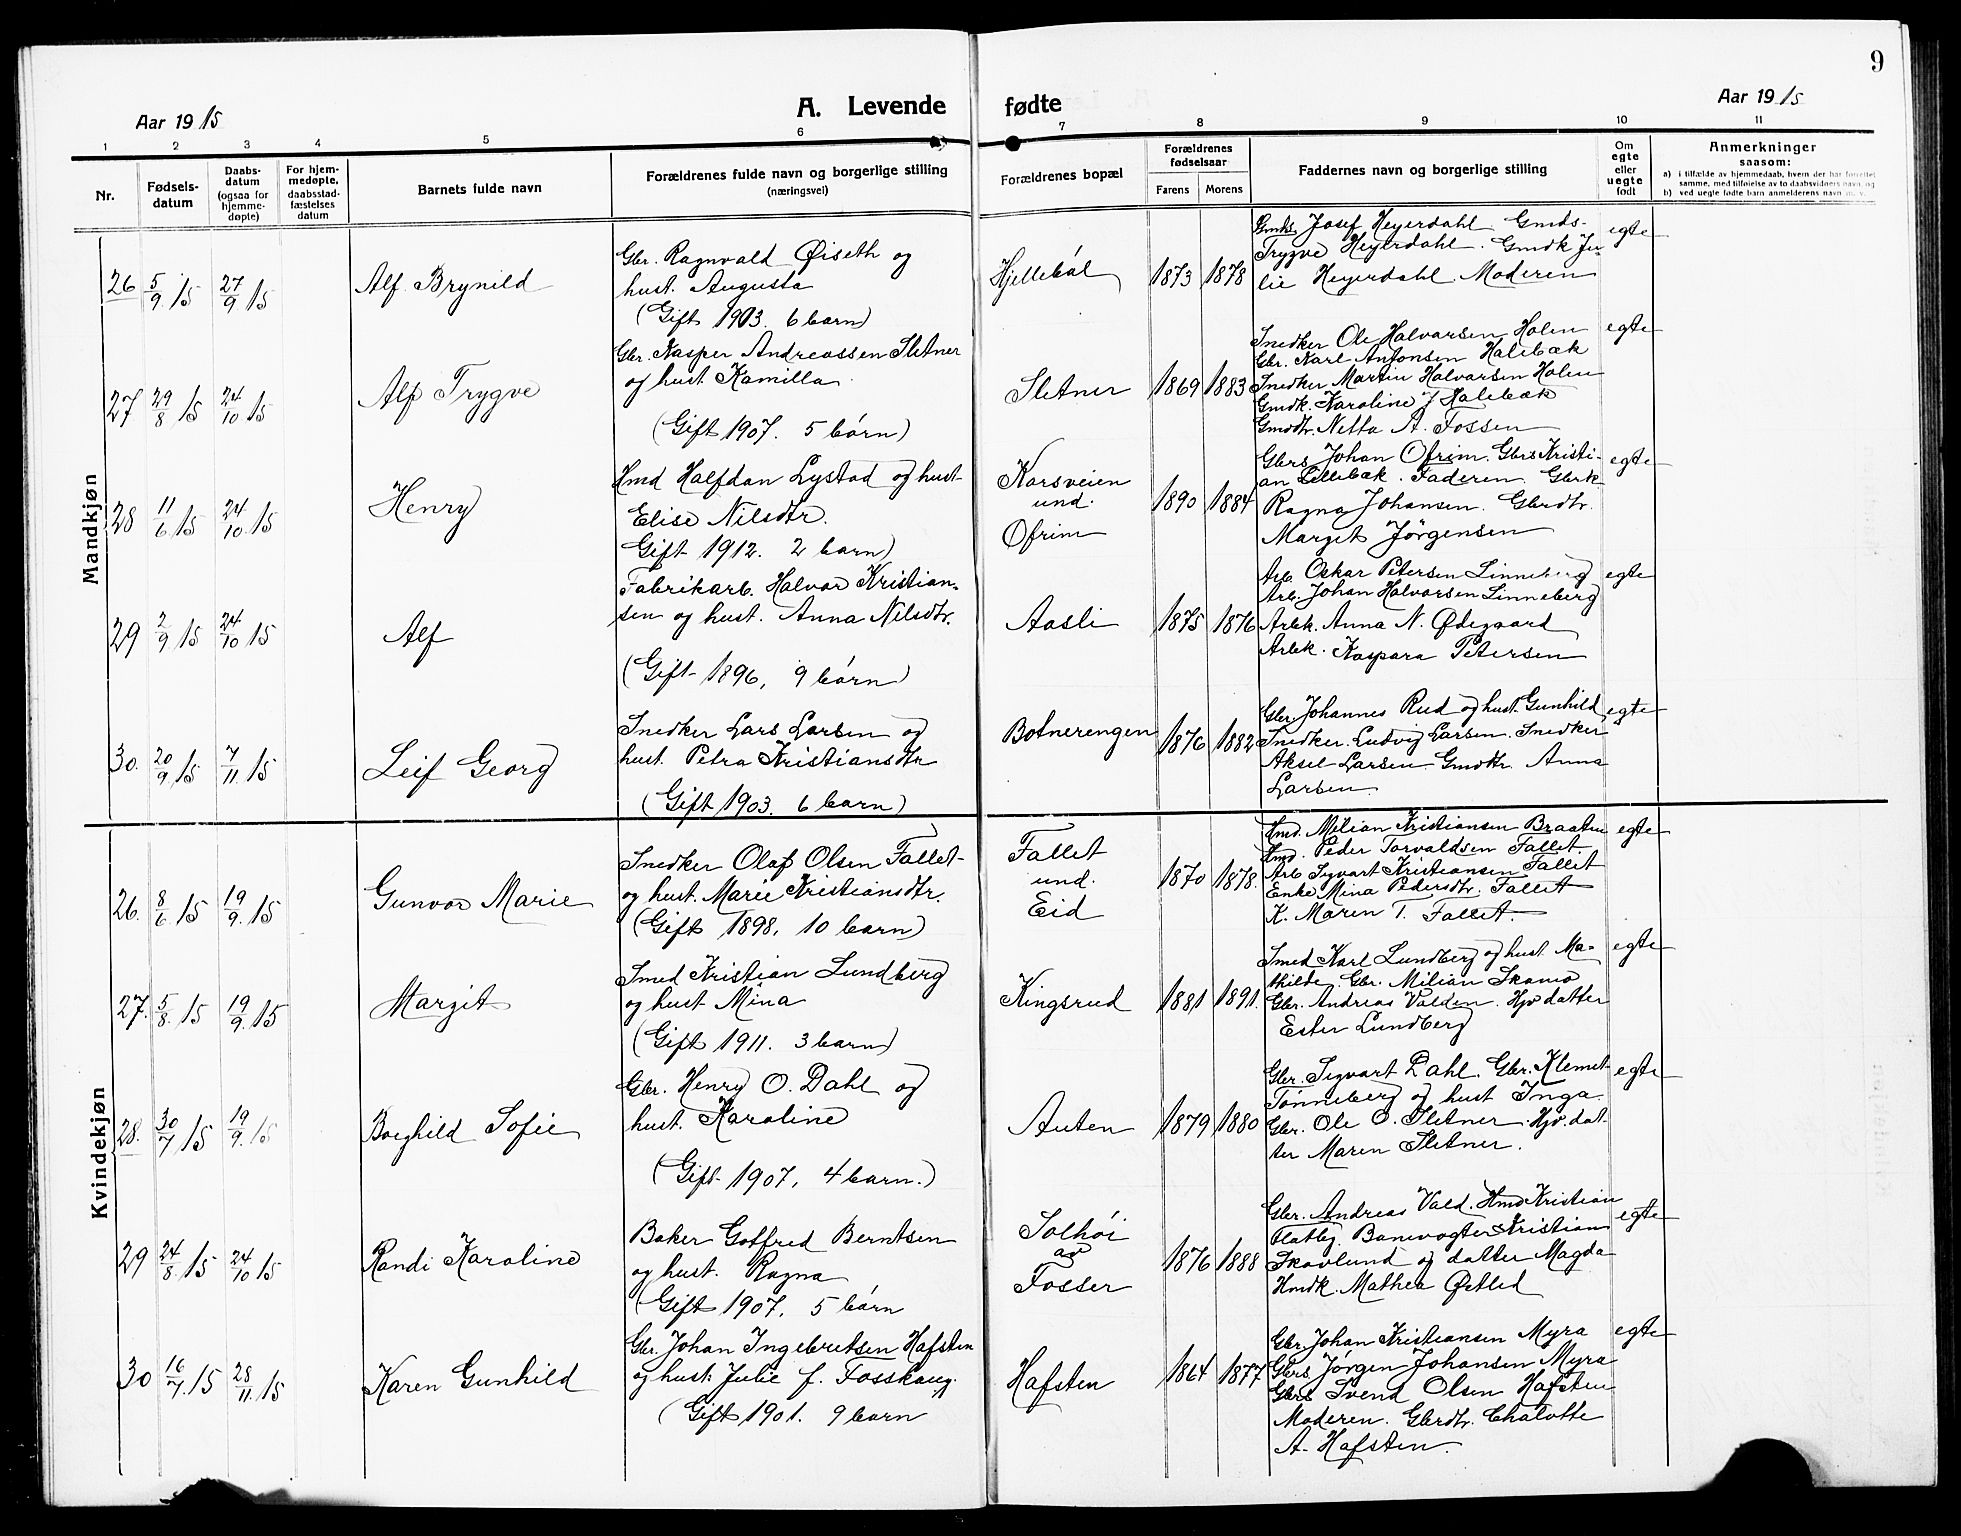 9
Aar 1915
A. Levende fødte
Aar 1915
1 2 3 4 5 6 7 8 9 10 11
Nr.
Fødsels-
datum
Daabs-
datum
(ogsaa for
hjemme-
døpte)
For hjem-
medøpte,
daabsstad-
fæstelses
datum
Barnets fulde navn
Forældrenes fulde navn og borgerlige stilling
(næringsvei)
Forældrenes bopæl
Forældrenes
fødselsaar
Farens Morens
Faddernes navn og borgerlige stilling
Om
egte
eller
uegte
født
Anmerkninger
saasom:
a) i tilfælde av hjemmedaab, hvem der har forrettet
samme, med tilføielse av to daabsvidners navn, og
b) ved uegte fødte barn anmelderens navn m. v.
Mandkjøn
26 5/9 15 27/9 15 Alf Brynild
Gbr. Ragnvald Øiseth og
hust. Augusta
(Gift 1903. 6 barn)
Hjellebøl 1873 1878
Gmds Josef Heyerdahl Gmds-
Trygve Heyerdahl. Gmdk Ju-
lie Heyerdahl. Moderen
egte
27 29/8 15 24/10 15 Alf Trygve
Gbr. Kasper Andreassen Sletner
og hust. Kamilla.
(Gift 1907. 5 børn)
Sletner 1869 1883
Snedker Ole Halvorsen Holen
Gbr. Karl Antonsen Halebæk
Snedker Martin Halvorsen Holen
Gmdk. Karoline J Halebæk
Gmdtr. Netta A. Fossen
egte
28 11/6 15 24/10 15 Henry
Hmd Halfdan Lystad og hust
Elise Nilsdtr.
Gift 1912. 2 barn)
Korsveien
und.
Ofrim
1890 1884
Gbrs. Johan Ofrim. Gbrs Kristi-
an Lillebæk. Faderen. Gbrk
Ragna Johansen. Gbrdtr.
Margit Jørgensen
egte
29 2/9 15 24/10 15 Alf
Fabrikarb. Halvor Kristian-
sen og hust. Anna Nilsdtr.
(Gift 1896, 9 børn)
Aasli 1875 1876
Arb. Oskar Petersen Linneberg
Arb. Johan Halvorsen Linneberg
Arbk. Anna N. Ødegaard
Arbk. Kaspara Petersen
egte
30. 20/9 15 7/11 15 Leif Georg
Snedker Lars Larsen og
hust. Petra Kristiansdtr
(Gift 1903. 6 barn)
Botnerengen 1876 1882
Gbr. Johannes Rud og hust. Gunhild
Snedker. Ludvig Larsen. Snedker
Aksel Larsen. Gmdtr. Anna
Larsen.
egte
Kvindekjøn
26. 8/6 15 19/9 15 Gunvor Marie
Snedker Olaf Olsen Fallet
og hust. Marie Kristiansdtr.
(Gift 1898, 10 barn)
Fallet
und.
Eid
1870 1878.
Hmd. Milian Kristiansen Braaten
Hmd. Peder Torvaldsen Fallet.
Arb Sigvart Kristiansen Fallet
Enke Mina Pedersdtr. Fallet
K. Maren T. Fallet.
egte
27. 5/8 15 19/9 15 Margit
Smed Kristian Lundberg
og hust Mina
(Gift 1911. 3 barn)
Kingsrud 1881 1891.
Smed Karl Lundberg og hust Ma-
thilde. Gbr. Milian Skamo
Gbr. Andreas Valden. Hjv datter
Ester Lundberg
egte
28. 30/7 15 19/9 15 Borghild Sofie
Gbr. Henry O. Dahl og
hust. Karoline
(Gift 1907, 4 barn.)
Auten 1879 1880
Gbr. Sigvart Dahl. Gbr. Klemet
Tønneberg og hust Inga.
Gbr. Ole O. Sletner. Hjv. dat-
ter Maren Sletner.
egte
29 24/8 15 24/10 15 Randi Karoline
Baker Gotfred Berntsen
og hust. Ragna
(Gift 1907, 5 børn
Solhøi
av
Fosser
1876 1888
Gbr. Andreas Vald. Hmd Kristian
Flatby. Banevogter Kristian
Skovlund og datter Magda
Hmdk. Mathea Østlid
egte
30 16/7 15 28/11 15 Karen Gunhild
Gbr. Johan Ingebretsen Hafsten
og hust. Julie f. Fosshaug.
(Gift 1901. 9 barn
Hafsten 1864 1877
Gbr. Johan Kristiansen Myra
Gbrs. Jørgen Johansen Myra
Gbrs Svend Olsen Hafsten
Moderen. Gbrdtr. Chalotte
A. Hafsten.
egte